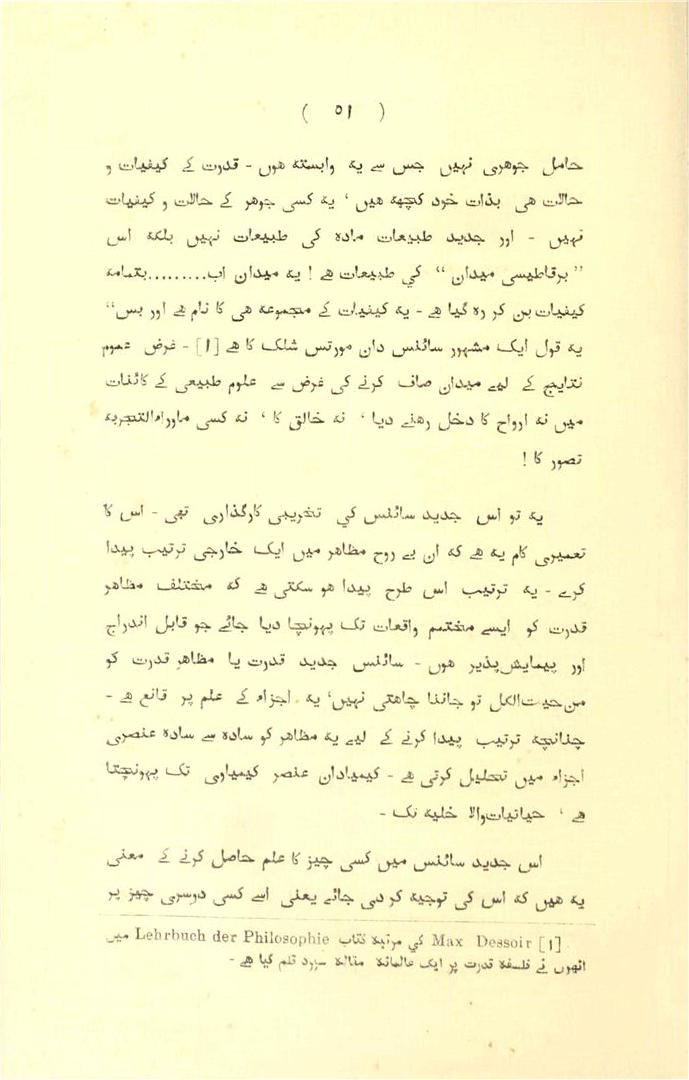 ( ٥١ )
حامل جوهری نہیں جس سے یہ وابستہ هوں - قدرت کے کیفیات و
حالات هی بذات خود کچھہ هیں ' یہ کسی جوهر کے حالات و کیفیات
نہیں - اور جدید طبیعات مادہ کی طبیعات نہیں بلکہ اس
" برقاطیسی میدان " کي طبیعات هے ! یہ میدان اب.........بتمامہ
کیفیات بن کر رہ گیا هے - یہ کیفیات کے مجموعہ هی کا نام هے اور بس"
یہ قول ایک مشہور سائنس دان مورتس شلک کا هے [۱] - غرض عموم
نتایج کے لیے میدان صاف کرنے کی غرض سے علوم طبیعی کے کائنات
میں نہ ارواح کا دخل رهنے دیا ' نہ خالق کا ' نہ کسی ماوراءالتجربہ
تصور کا !
یہ تو اس جدید سائنس کي تخریبی کارگذاری تھی - اس کا
تعمیری کام یہ هے کہ ان بے روح مظاهر میں ایک خارجی ترتیب پیدا
کرے - یہ ترتیب اس طرح پیدا هو سکتی هے کہ مختلف مظاهر
قدرت کو ایسے مختتم واقعات تک پہونچا دیا جائے جو قابل اندراج
اور پیمایش‌پذیر هوں - سائنس جدید قدرت یا مظاهرِ قدرت کو
من‌حیث‌الکل تو جاننا چاهتی نہیں' یہ اجزاء کے علم پر قانع هے -
چنانچہ ترتیب پیدا کرنے کے لیے یہ مظاهر کو سادہ سے سادہ عنصری
اجزاء میں تحلیل کرتی هے - کیمیادان عنصر کیمیاوی تک پہونچتا
هے ' حیاتیات‌والا خلیہ تک -
اس جدید سائنس میں کسی چیز کا علم حاصل کرنے کے معنی
یہ هیں کہ اس کی توجیہ کر دی جائے یعنی اسے کسی دوسری چیز پر
[۱] Max Dessoir کي مرتبہ کتاب Lehrbuch der Philosophie میں
انھوں نے فلسفۂ قدرت پر ایک عالمانہ مقالہ سپرد قلم کیا هے -